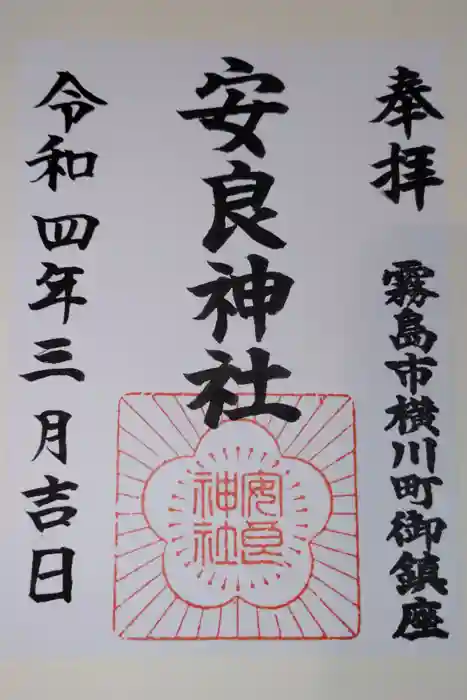 奉拝
霧島市横川町御鎮座
安良神社
安良
神社
令和四年三月吉日